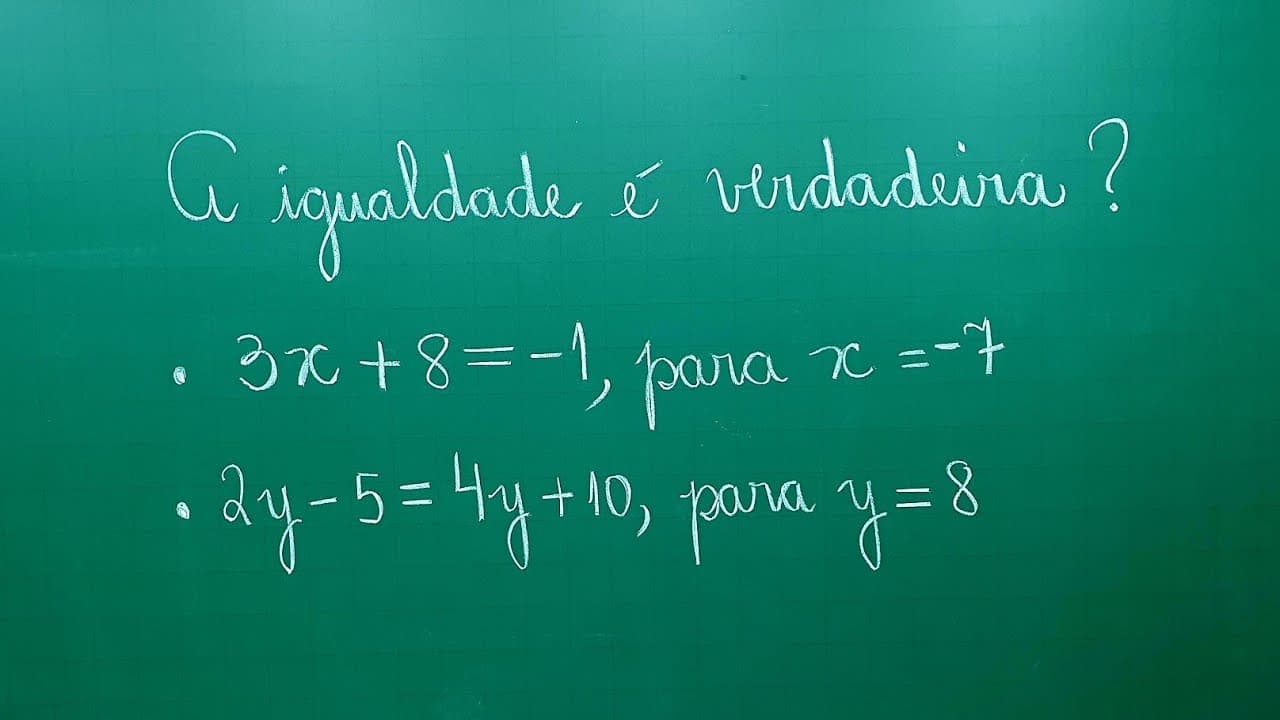 A igualdade é verdadeira?
• 3x + 8 = -1, para x = -7
• 2y - 5 = 4y + 10, para y = 8